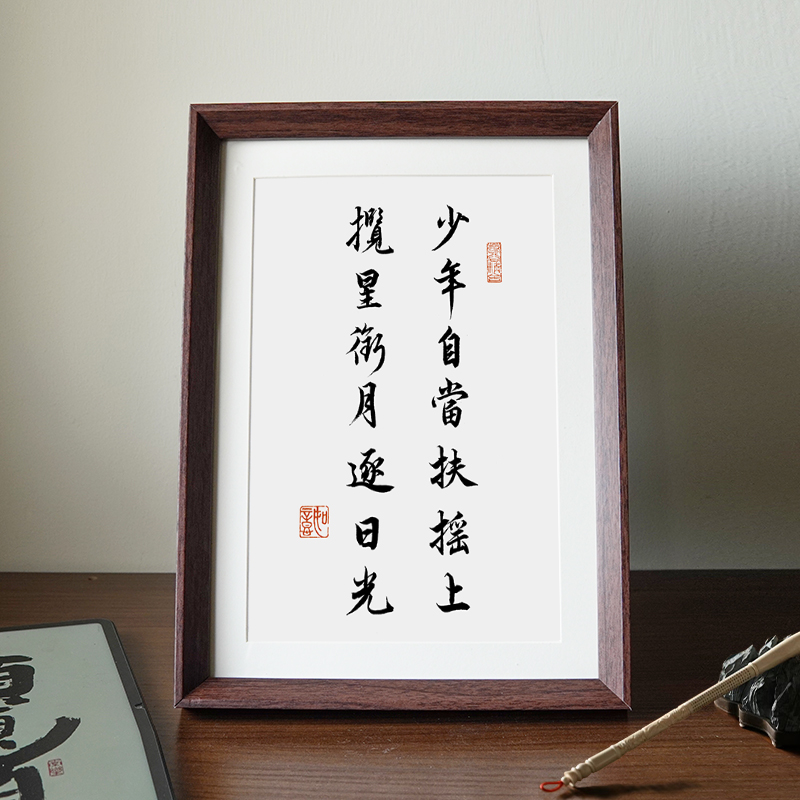 少年自當扶摇上
攬星銜月逐日光